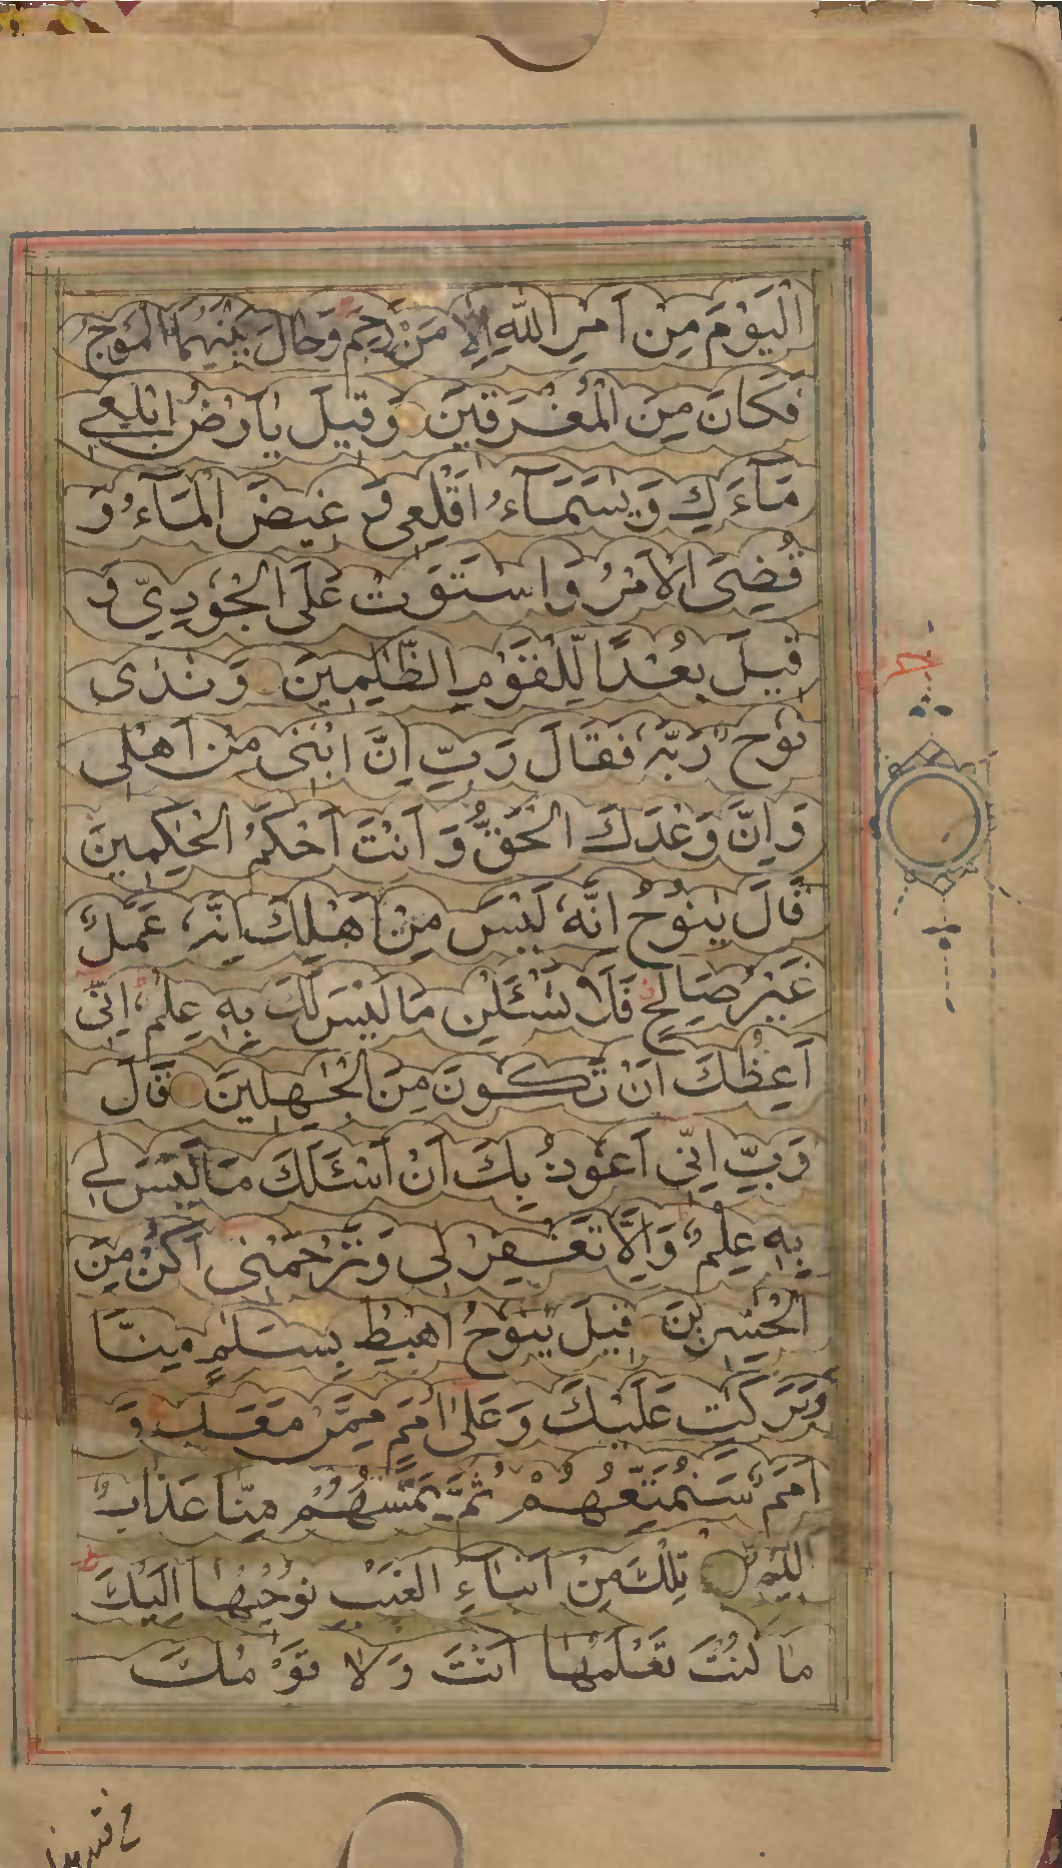 الْيَوْمَ مِنْ اَمْرِ اللّٰهِ اِلَّا مَنْ رَحِمَ وَحَالَ بَيْنَهُمَا الْمَوْجُ
فَكَانَ مِنَ الْمُغْرَقِيْنَ وَقِيْلَ يٰاَرْضُ ابْلَعِيْ
مَآءَكِ وَيٰسَمَآءُ اَقْلِعِى وَ غِيْضَ الْمَآءُ وَ
قُضِىَ الْاَمْرُ وَاسْتَوَتْ عَلَى الْجُوْدِيِّ وَ
قِيْلَ بُعْدًا لِّلْقَوْمِ الظّٰلِمِيْنَ وَنَادٰى
نُوْحٌ رَّبَّهٗ فَقَالَ رَبِّ اِنَّ ابْنِىْ مِنْ اَهْلِى
وَاِنَّ وَعْدَكَ الْحَقُّ وَ اَنْتَ اَحْكَمُ الْحٰكِمِيْنَ
قَالَ يٰنُوْحُ اِنَّهٗ لَيْسَ مِنْ اَهْلِكَ اِنَّهٗ عَمَلٌ
غَيْرُ صَالِحٍ فَلَا تَسْئَلْنِ مَا لَيْسَ لَكَ بِهٖ عِلْمٌ اِنِّىْ
اَعِظُكَ اَنْ تَكُوْنَ مِنَ الْجٰهِلِيْنَ قَالَ
رَبِّ اِنِّى اَعُوْذُ بِكَ اَنْ اَسْئَلَكَ مَا لَيْسَ لِيْ
بِهٖ عِلْمٌ وَاِلَّا تَغْفِرْ لِى وَتَرْحَمْنِى اَكُنْ مِنَ
الْخٰسِرِيْنَ قِيْلَ يٰنُوْحُ اهْبِطْ بِسَلٰمٍ مِنَّا
وَبَرَكٰتٍ عَلَيْكَ وَعَلٰى اُمَمٍ مِمَّنْ مَعَكَ وَ
اُمَمٌ سَنُمَتِّعُهُمْ ثُمَّ يَمَسُّهُمْ مِنَّا عَذَابٌ
اَلِيْمٌ تِلْكَ مِنْ اَنْبَاءِ الْغَيْبِ نُوْحِيْهَا اِلَيْكَ
مَا كُنْتَ تَعْلَمُهَا اَنْتَ وَلَا قَوْمُكَ